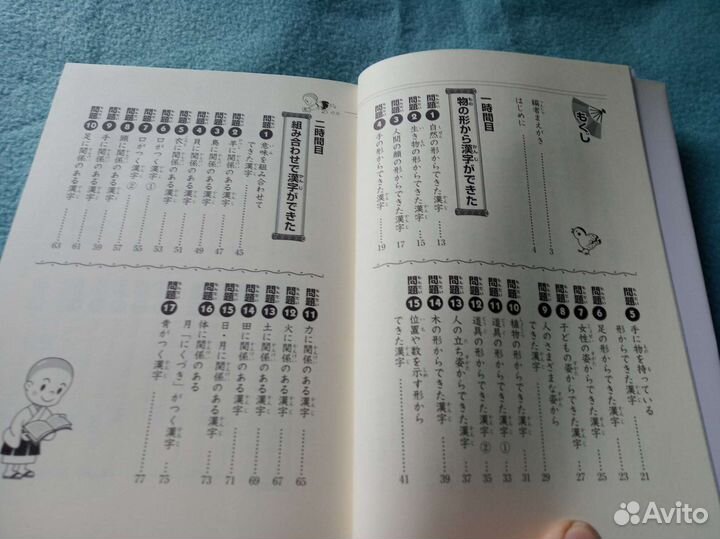 もくじ
編者まえがき……3
はじめに……4
一時間目
物の形から漢字ができた
問題1 自然の形からできた漢字……13
問題2 生き物の形からできた漢字……15
問題3 人間の顔の形からできた漢字……17
問題4 手の形からできた漢字……19
問題5 手に物を持っている
形からできた漢字……21
問題6 足の形からできた漢字……23
問題7 女性の姿からできた漢字……25
問題8 子どもの姿からできた漢字……27
問題9 人のさまざまな姿から
できた漢字……29
問題10 植物の形からできた漢字……31
問題11 道具の形からできた漢字①……33
問題12 道具の形からできた漢字②……35
問題13 人の立ち姿からできた漢字……37
問題14 木の形からできた漢字……39
問題15 位置や数を示す形から
できた漢字……41
二時間目
組み合わせて漢字ができた
問題1 意味を組み合わせて
できた漢字……45
問題2 羊に関係のある漢字……47
問題3 鳥に関係のある漢字……49
問題4 貝に関係のある漢字……51
問題5 衣に関係のある漢字……53
問題6 口がつく漢字①……55
問題7 口がつく漢字②……57
問題8 頭に関係のある漢字……59
問題9 手に関係のある漢字……61
問題10 足に関係のある漢字……63
問題11 力に関係のある漢字……65
問題12 火に関係のある漢字……67
問題13 土に関係のある漢字……69
問題14 田に関係のある漢字……71
問題15 日・月に関係のある漢字……73
問題16 体に関係のある
月「にくづき」がつく漢字……75
問題17 青がつく漢字……77
Avito